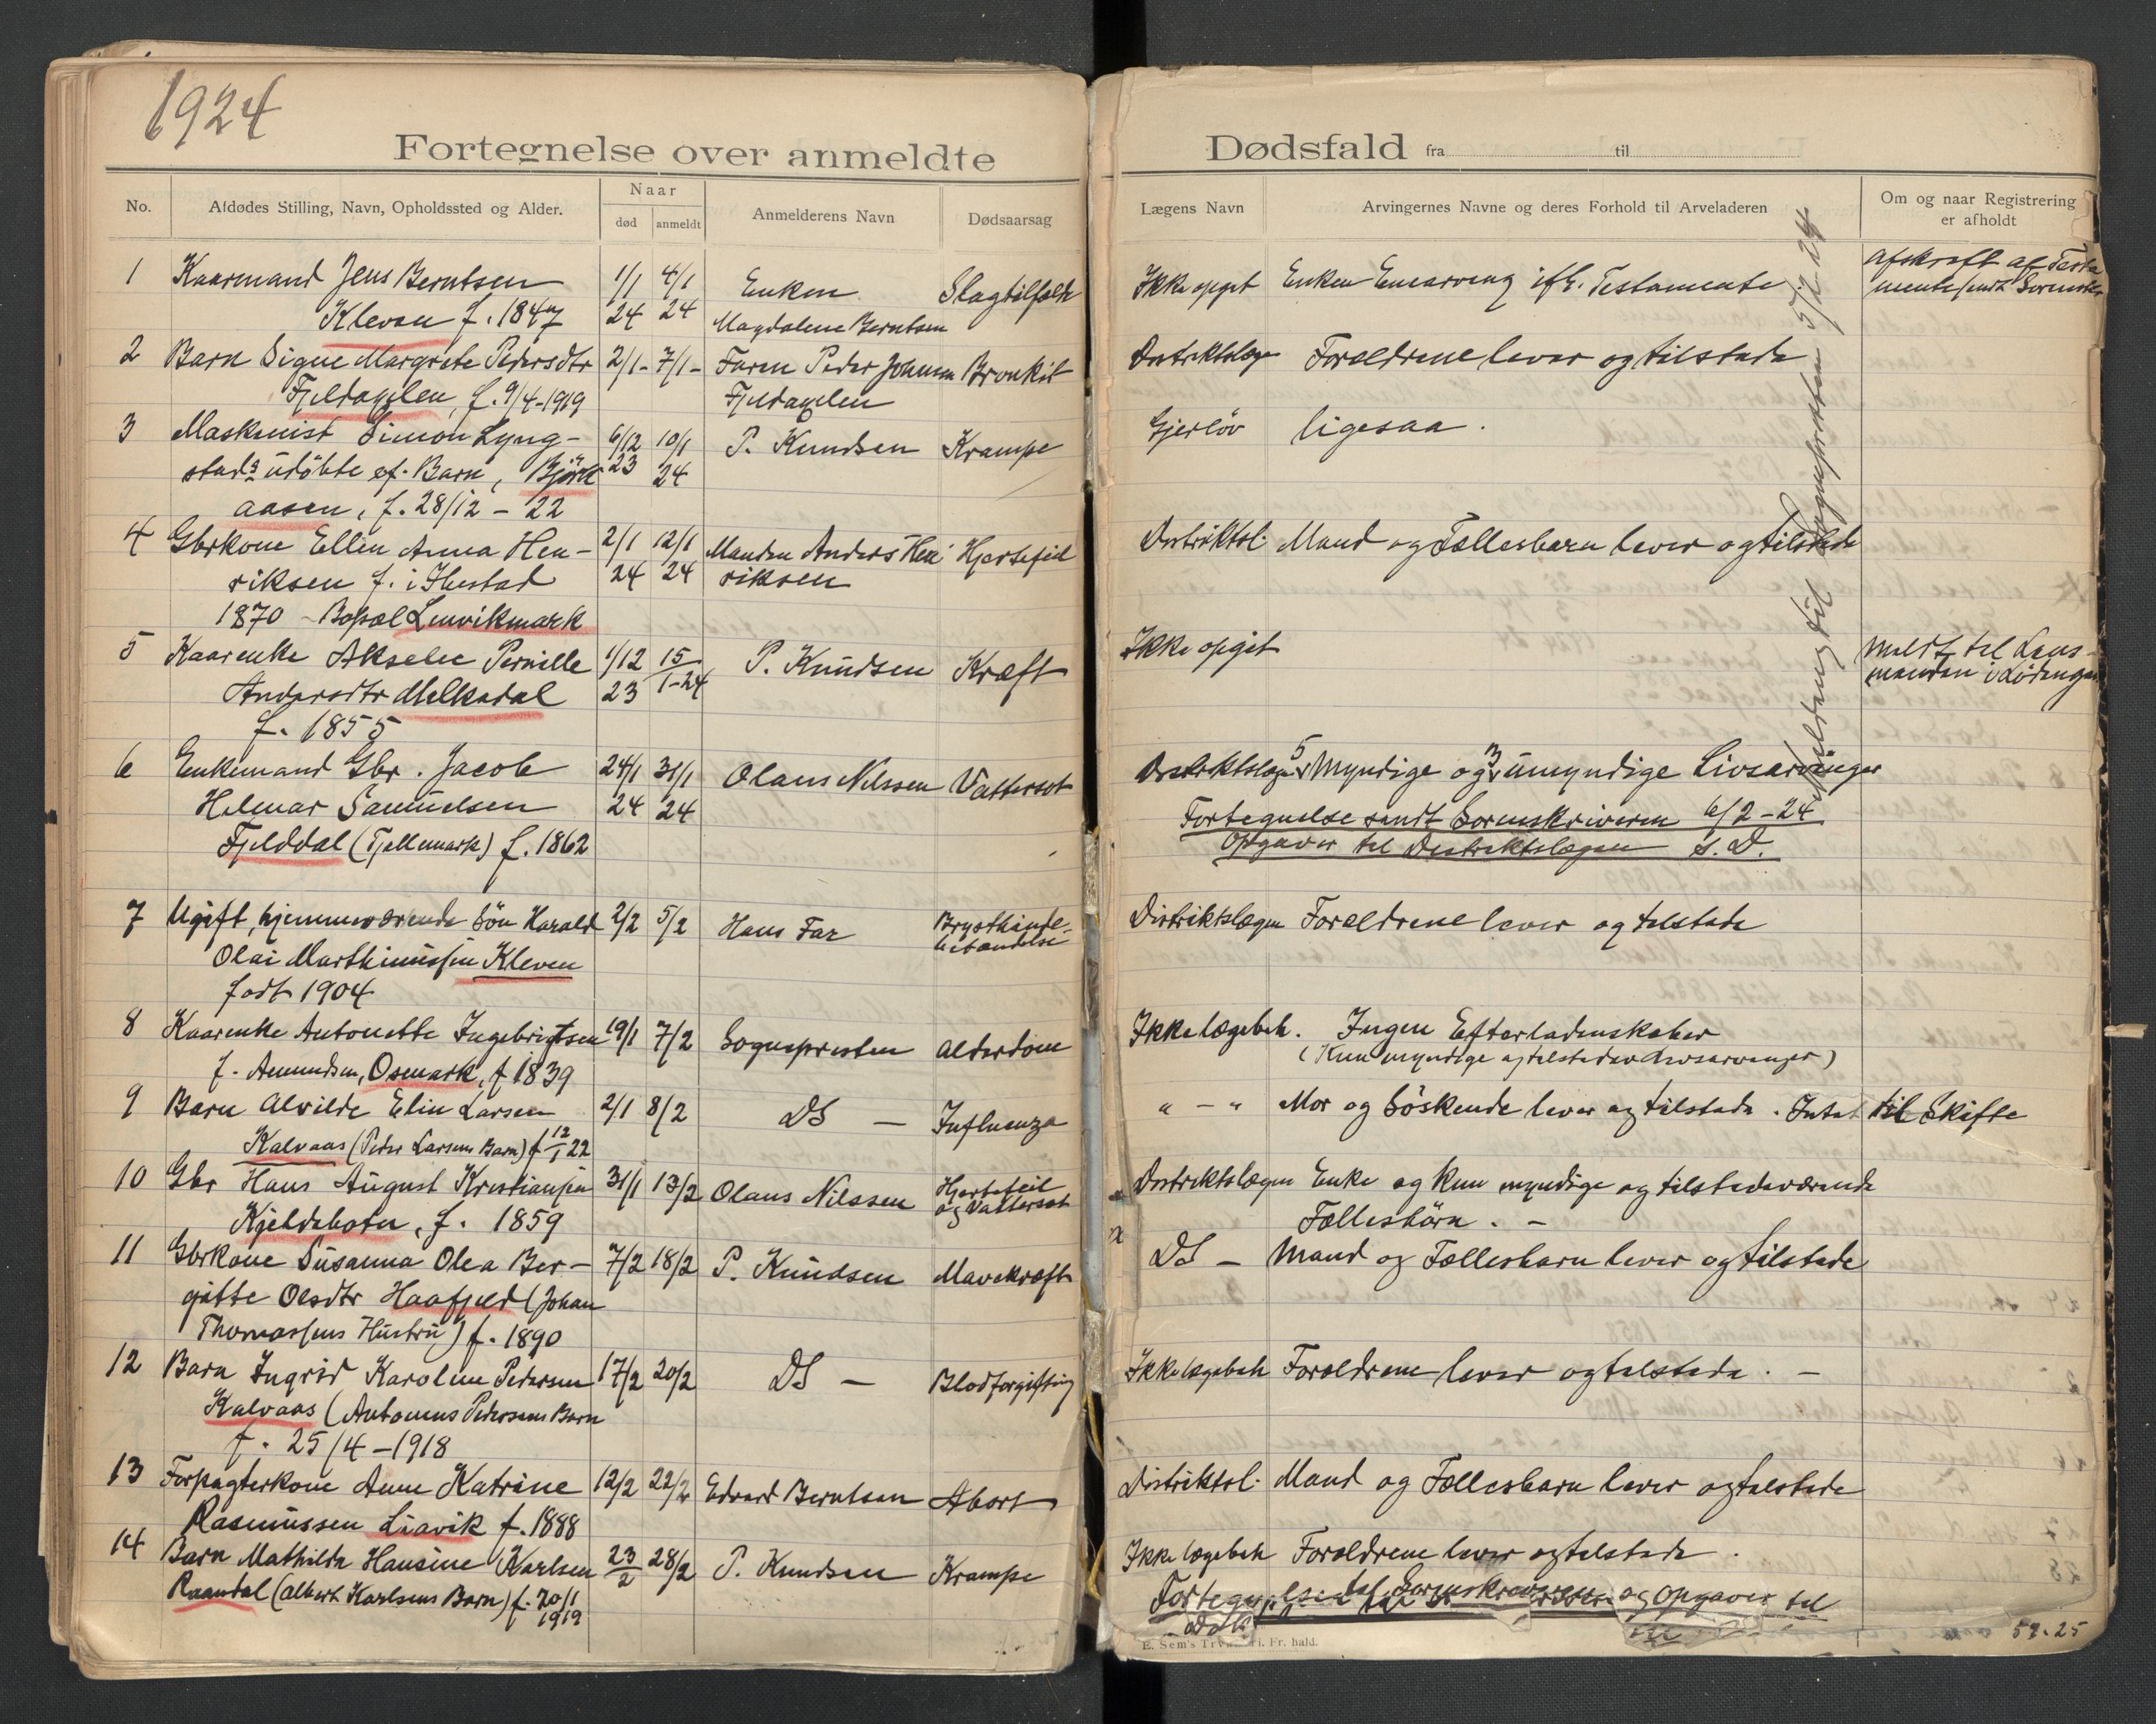 1924
Fortegnelse over anmeldte
No.
Afdødes Stilling, Navn, Opholdssted og Alder.
Naar
død
anmeldt
Anmelderens Navn
Dødsaarsag
1 Kaarmand Jens Berntsen 1/1 4/1 Enken Slagtilfælde
Kleven f. 1847 24 24 Magdalene Berntsen
2 Barn Signe Margrete Pedersdtr 2/1 - 7/1 - Faren Peder Johnsen Bronkit
Fjeldaxlen, f. 9/4-1919 Fjeldaxlen
3 Maskinist Simon Lyng- 6/12 10/1 P. Knudsen Krampe
stads udöbte ef. Barn, Björk 23 24
aasen, f. 28/12 - 22
4 Gbrkone Ellen Anna Hen- 2/1 12/1 Manden Anders Hen Hjertefeil
riksen f. i Ibestad 24 24 riksen
1870 - Bopæl Lenvikmark
5 Kaarenke Akselie Pernille 1/12 15 P. Knudsen Kræft
Andersdtr Melkedal 23 1-24
f. 1855
6 Enkemand Gbr. Jacob 24/1 31/1 Olaus Nilssen Vattersot
Helmar Samuelsen 24 24
Fjelddal (Tjellemark) f. 1862
7 Ugift, hjemmeværende Sön Harald 2/2 5/2 Hans Far Brysthinde-
Olai Marthinussen Kleven betændelse
født 1904
8 Kaarenke Antonette Ingebrigtsen 19/1 7/2 Sognepresten Alderdom
f. Amundsen, Osmark, f 1839
9 Barn Alvilde Elin Larsen 2/1 8/2 DS — Influenza
Kalvaas (Peder Larsens Barn) f 12/1 22
10 Gbr Hans August Kristiansen 31/1 13/2 Olaus Nilssen Hjertefeil
Kjeldebotn, f. 1859 og Vattersot
11 Gbrkone Susanna Olea Ber- 7/2 18/2 P. Knudsen Mavekræft
gitte Olsdtr Haafjeld (Johan
Thomassens Hustru) f. 1890
12 Barn Ingrid Karoline Pedersen 17/2 20/2 DS — Blodforgiftning
Kalvaas (Antonius Pedersens Barn
f. 25/4 - 1918
13 Forpagterkone Anne Katrine 12/2 22/2 Edvard Berntsen Abort
Rasmussen Liavik f. 1888
14 Barn Mathilde Hansine Karlsen 23/2 28/2 P. Knudsen Krampe
Raandal (Albert Karlsens Barn) f. 20/1
1919
Dødsfald fra til
Lægens Navn
Arvingernes Navne og deres Forhold til Arveladeren
Om og naar Registrering
er afholdt
Ikke opget Enken Enearving ifl. Testamente Afskrift af Testa
mente sendt Sorenskr
Distriktslæge Forældrene lever og tilstede
Gjerlöv ligesaa.
Distriktsl. Mand og Fællesbarn lever og tilstede
Ikke opgit Meldt til Lens-
manden i Lödingen
Melding til Sognepresten 5/2 24
Distriktslægen 5 Myndige og 3 umyndige Livsarvinger
Fortegnelse sendt Sorenskriveren 6/2 - 24
Opgaver til Distriktslægen s. D.
Distriktslægen Forældrene lever og tilstede
Ikke lægebeh. Ingen Efterladenskaber
(Kun myndige og tilstedev. Livsarvinger)
" - " Mor og Söskende lever og tilstede. Intet til Skifte
Distriktslægen Enke og kun myndige og tilstedeværende
Fællesbörn. -
DS - Mand og Fællesbarn lever og tilstede
Ikke lægebeh Forældrene lever og tilstede. -
Distriktsl. Mand og Fællesbarn lever og tilstede
Ikke lægebeh Forældrene lever og tilstede.
Fortegnelse til Sorenskriveren og Opgaver til
E. Sem's Fr. hald.